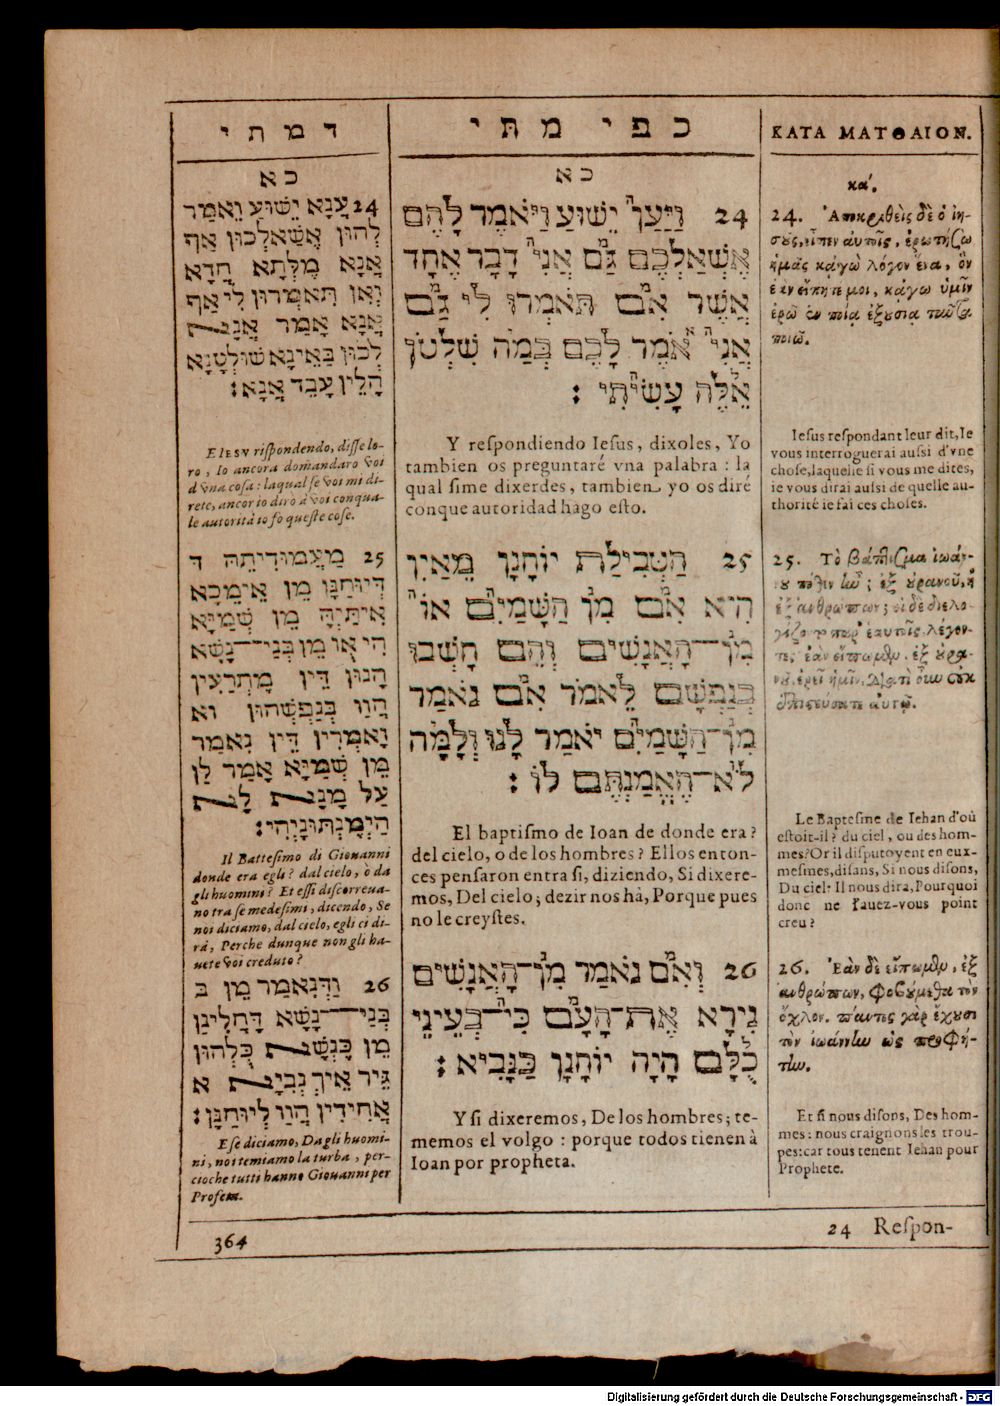 דמתי
כא
24 עֲנָא יֵשׁוּע וֵאמַר
לְהוּן אֲשַׁאלְכוּן אַף
אֲנָא מֶלְּתָא חֲדָא
וְאֶן תִּאמְרוּן לִי אַף
אֲנָא אָמַר אֲנָא
לְכוּן בַּאֵינָא שׁוּלְטָנָא
הָלֵין עָבֵד אֲנָא:
E IESV riſpondendo, diſſe lo-
ro, Io ancora domandaro voi
d'vna coſa: laqual ſe voi mi di-
rete, ancor io dirò à voi con qua-
le autorità io fo queſte coſe.
25 מַעֲמוּדִיתֵהּ ד
דְּיוּחַנָּן מֵן אֵימֶכָא
אִיתֵיהָ מֵן שְׁמַיָּא
הִי אַו מֵן בְּנַי־נָשָׁא
הָנוּן דֵּין מֶתְרַעֵין
הֲווּ בְּנַפְשְׁהוּן וא
וָאמְרִין דֵּין נִאמַר
מֵן שְׁמַיָּא אָמַר לַן
עַל מָנָא לָא
הַיְמֶנְתּוּנָיְהִי:
Il Batteſimo di Giouanni
donde era egli? dal cielo, ò da
gli huomini? Et eſſi diſcorreua-
no tra ſe medeſimi, dicendo, Se
noi diciamo, dal cielo, egli ci di-
rà, Perche dunque non gli ha-
uete voi creduto?
26 וַדְנִאמַר מֵן ב
בְּנַי־נָשָׁא דָּחֲלִינַן
מֵן כֶּנְשָׁא כֻּלְּהוּן
גֵּיר אֵיךְ נְבִיָּא א
אֲחִידִין הֲווּ לְיוּחַנָּן:
E ſe diciamo, Da gli huomi-
ni, noi temiamo la turba, per-
cioche tutti hanno Giouanni per
Profeta.
כפי מתי
כא
24 וַיַּעַן יֵשׁוּעַ וַיֹּאמֶר לָהֶם
אֶשְׁאַלְכֶם גַּם אֲנִי דָּבָר אֶחָד
אֲשֶׁר אִם תֹּאמְרוּ לִי גַּם
אֲנִי אֹמֶר לָכֶם בְּמַה שִׁלְטֹן
אֵלֶּה עָשִׂיתִי:
Y reſpondiendo Ieſus, dixoles, Yo
tambien os preguntaré vna palabra: la
qual ſime dixerdes, tambien yo os diré
con que autoridad hago eſto.
25 הַטְּבִילַת יוֹחָנָן מֵאַיִן
הִיא אִם מִן הַשָּׁמַיִם אוֹ
מִן־הָאֲנָשִׁים וְהֵם חָשְׁבוּ
בְּנַפְשָׁם לֵאמֹר אִם נֹאמַר
מִן־הַשָּׁמַיִם יֹאמַר לָנוּ וְלָמָּה
לֹא־הֶאֱמַנְתֶּם לוֹ:
El baptiſmo de Ioan de donde era?
del cielo, o de los hombres? Ellos enton-
ces penſaron entra ſi, diziendo, Si dixere-
mos, Del cielo; dezir nos hà, Porque pues
no le creyſtes.
26 וְאִם נֹאמַר מִן־הָאֲנָשִׁים
נִירָא אֶת־הָעָם כִּי־בְּעֵינֵי
כֻלָּם הָיָה יוֹחָנָן כַּנָּבִיא:
Y ſi dixeremos, De los hombres; te-
memos el volgo: porque todos tienen à
Ioan por propheta.
ΚΑΤΑ ΜΑΤΘΑΙΟΝ.
κα'.
24. Ἀποκριθεὶς δὲ ὁ ἰη-
σοῦς, εἶπεν αὐτοῖς, ἐρωτήσω
ὑμᾶς κἀγὼ λόγον ἕνα, ὃν
ἐὰν εἴπητέ μοι, κἀγὼ ὑμῖν
ἐρῶ ἐν ποίᾳ ἐξουσίᾳ ταῦτα
ποιῶ.
Ieſus reſpondant leur dit, Ie
vous interroguerai auſſi d'vne
choſe, laquelle ſi vous me dites,
ie vous dirai auſſi de quelle au-
thorité ie fai ces choſes.
25. Τὸ βάπτισμα ἰωάν-
νου πόθεν ἦν; ἐξ οὐρανοῦ, ἢ
ἐξ ἀνθρώπων; οἱ δὲ διελο-
γίζοντο παρ' ἑαυτοῖς, λέγον-
τες, ἐὰν εἴπωμεν, ἐξ οὐρα-
νοῦ, ἐρεῖ ἡμῖν, Διατί οὖν οὐκ
ἐπιστεύσατε αὐτῷ.
Le Bapteſme de Iehan d'où
eſtoit-il? du ciel, ou des hom-
mes? Or il diſputoyent en eux-
meſmes, diſans, Si nous diſons,
Du ciel: Il nous dira, Pourquoi
donc ne l'auez-vous point
creu?
26. Ἐὰν δὲ εἴπωμεν, ἐξ
ἀνθρώπων, φοβούμεθα τὸν
ὄχλον. πάντες γὰρ ἔχουσι
τὸν ἰωάννην ὡς προφή-
την.
Et ſi nous diſons, Des hom-
mes: nous craignons les trou-
pes: car tous tenent Iehan pour
Prophete.
364
24 Reſpon-
Digitalisierung gefördert durch die Deutsche Forschungsgemeinschaft - DFG